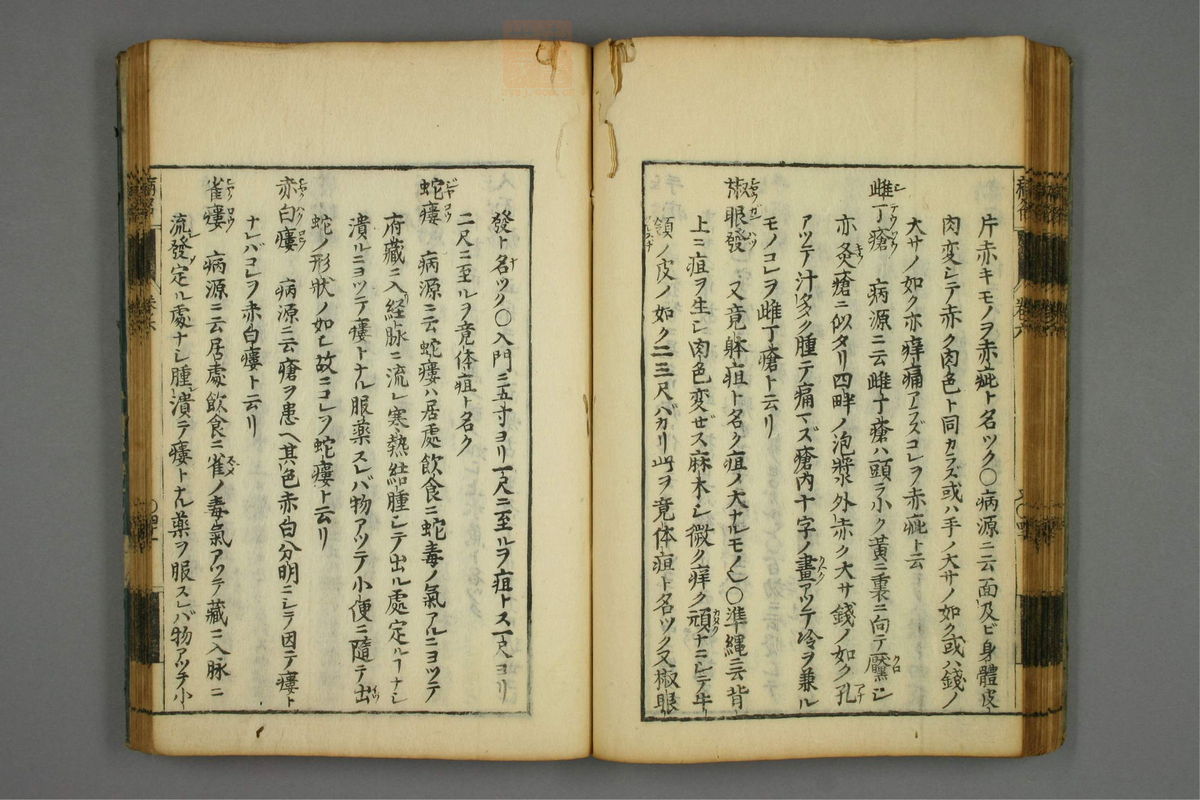 片赤キモノヲ赤疵ト名ツク〇病源ニ云面及ビ身體皮
肉変シテ赤ク肉色ト同カラズ或ハ手ノ大サノ如ク或ハ錢ノ
大サノ如ク亦痒痛アラズコレヲ赤疵ト云
雌丁瘡 病源ニ云雌丁瘡ハ頭ラ小ク黃ニ裏ニ向テ黶黑シ
亦灸瘡ニ似タリ四畔ノ泡漿外赤ク大サ錢ノ如ク孔
アツテ汁タク腫テ痛マズ瘡内十字ノ畫アツテ冷ヲ兼ル
モノコレヲ雌丁瘡ト云リ
椒眼發 又竟躰疽ト名ク疽ノ大ナルモノ也〇準繩ニ云背
上ニ疽ヲ生シ肉色変ゼズ麻木シ微ク痒ク頑ナニシテ牛
領ノ皮ノ如ク二三尺バガリ此ヲ竟体疽ト名ツク又椒眼
發ト名ツク〇入門ニ五寸ヨリ一尺ニ至ルヲ疽トス一尺ヨリ
二尺ニ至ルヲ竟体疽ト名ク
蛇瘻 病源ニ云蛇瘻ハ居處飲食ニ蛇毒ノ氣アルニヨツテ
府藏ニ入経脉ニ流レ寒熱結腫シテ出ル處定ルヿナシ
潰ルニヨツテ瘻トナル服薬スレバ物アツテ小便ニ隨テ出
蛇ノ形狀ノ如レ故ニコレヲ蛇瘻ト云リ
赤白瘻 病源ニ云瘡ヲ患ヘ其色赤白分明ニシテ因テ瘻ト
ナレバコレヲ赤白瘻ト云リ
雀瘻 病源ニ云居處飲食ニ雀ノ毒氣アツテ藏ニ入脉ニ
流發定ル處ナシ腫潰テ瘻トナル薬ヲ服スレバ物アツテ小